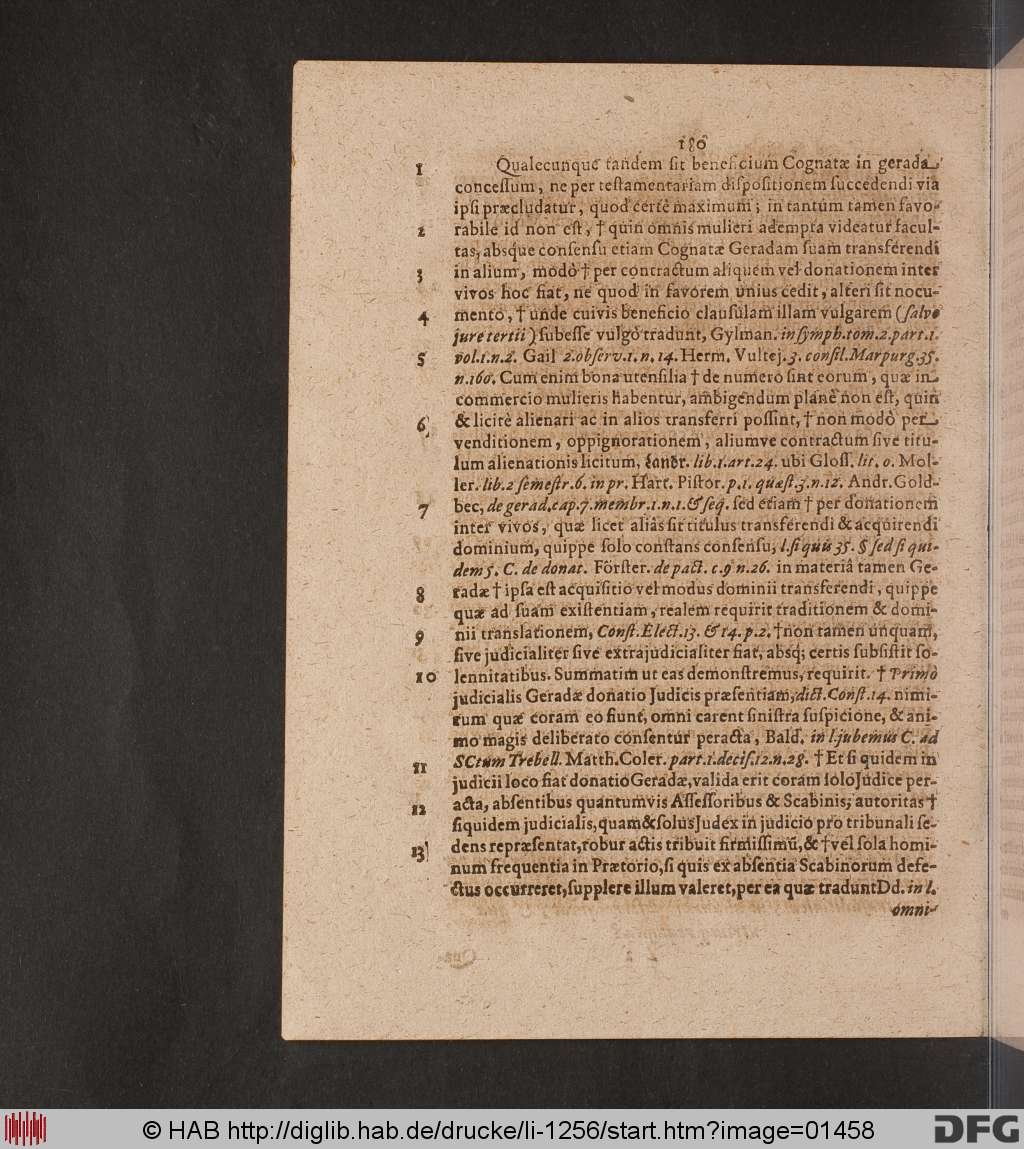 180
1 Qualecunque tandem sit beneficium Cognatæ in gerada
concessum, ne per testamentariam dispositionem succedendi via
ipsi præcludatur, quod certè maximum; in tantum tamen favo-
2 rabile id non est, † quin omnis mulieri adempta videatur facul-
tas, absque consensu etiam Cognatæ Geradam suam transferendi
3 in alium, modò † per contractum aliquem vel donationem inter
vivos hoc fiat, ne quod in favorem unius cedit, alteri sit nocu-
4 mento, † unde cuivis beneficio clausulam illam vulgarem (salvo
jure tertii) subesse vulgò tradunt, Gylman. in symph. tom. 2. part. 1.
5 vol. 1. n. 2. Gail 2. observ. 1. n. 14. Herm. Vultej. 3. consil. Marpurg. 35.
n. 160. Cum enim bona utensilia † de numero sint eorum, quæ in
commercio mulieris habentur, ambigendum planè non est, quin
6 & licitè alienari ac in alios transferri possint, † non modò per
venditionem, oppignorationem, aliumve contractum sive titu-
lum alienationis licitum, Landr. lib. 1. art. 24. ubi Gloss. lit. o. Mol-
ler. lib. 2 semestr. 6. in pr. Hart. Pistor. p. 1. quæst. 3. n. 12. Andr. Gold-
7 bec, de gerad. cap. 7. membr. 1. n. 1. & seq. sed etiam † per donationem
inter vivos, quæ licet aliâs sit titulus transferendi & acquirendi
dominium, quippe solo constans consensu, l. si quis 35. § sed si qui-
dem 5. C. de donat. Förster. de pact. c. 9 n. 26. in materiâ tamen Ge-
8 radæ † ipsa est acquisitio vel modus dominii transferendi, quippe
quæ ad suam existentiam, realem requirit traditionem & domi-
9 nii translationem, Const. Elect. 13. & 14. p. 2. † non tamen unquam,
sive judicialiter sive extrajudicialiter fiat, absq; certis subsistit so-
10 lennitatibus. Summatim ut eas demonstremus, requirit. † Primò
judicialis Geradæ donatio Judicis præsentiam, dict. Const. 14. nimi-
rum quæ coram eo fiunt, omni carent sinistra suspicione, & ani-
mo magis deliberato consentur peracta, Bald. in l. jubemus C. ad
11 SCtum Trebell. Matth. Coler. part. 1. decis. 12. n. 28. † Et si quidem in
judicii loco fiat donatio Geradæ, valida erit coram solo Judice per-
12 acta, absentibus quantumvis Assessoribus & Scabinis; autoritas †
siquidem judicialis, quam & solus Judex in judicio pro tribunali se-
13 dens repræsentat, robur actis tribuit firmissimũ, & † vel sola homi-
num frequentia in Prætorio, si quis ex absentia Scabinorum defe-
ctus occurreret, supplere illum valeret, per ea quæ tradunt Dd. in l.
omni-
© HAB http://diglib.hab.de/drucke/li-1256/start.htm?image=01458
DFG